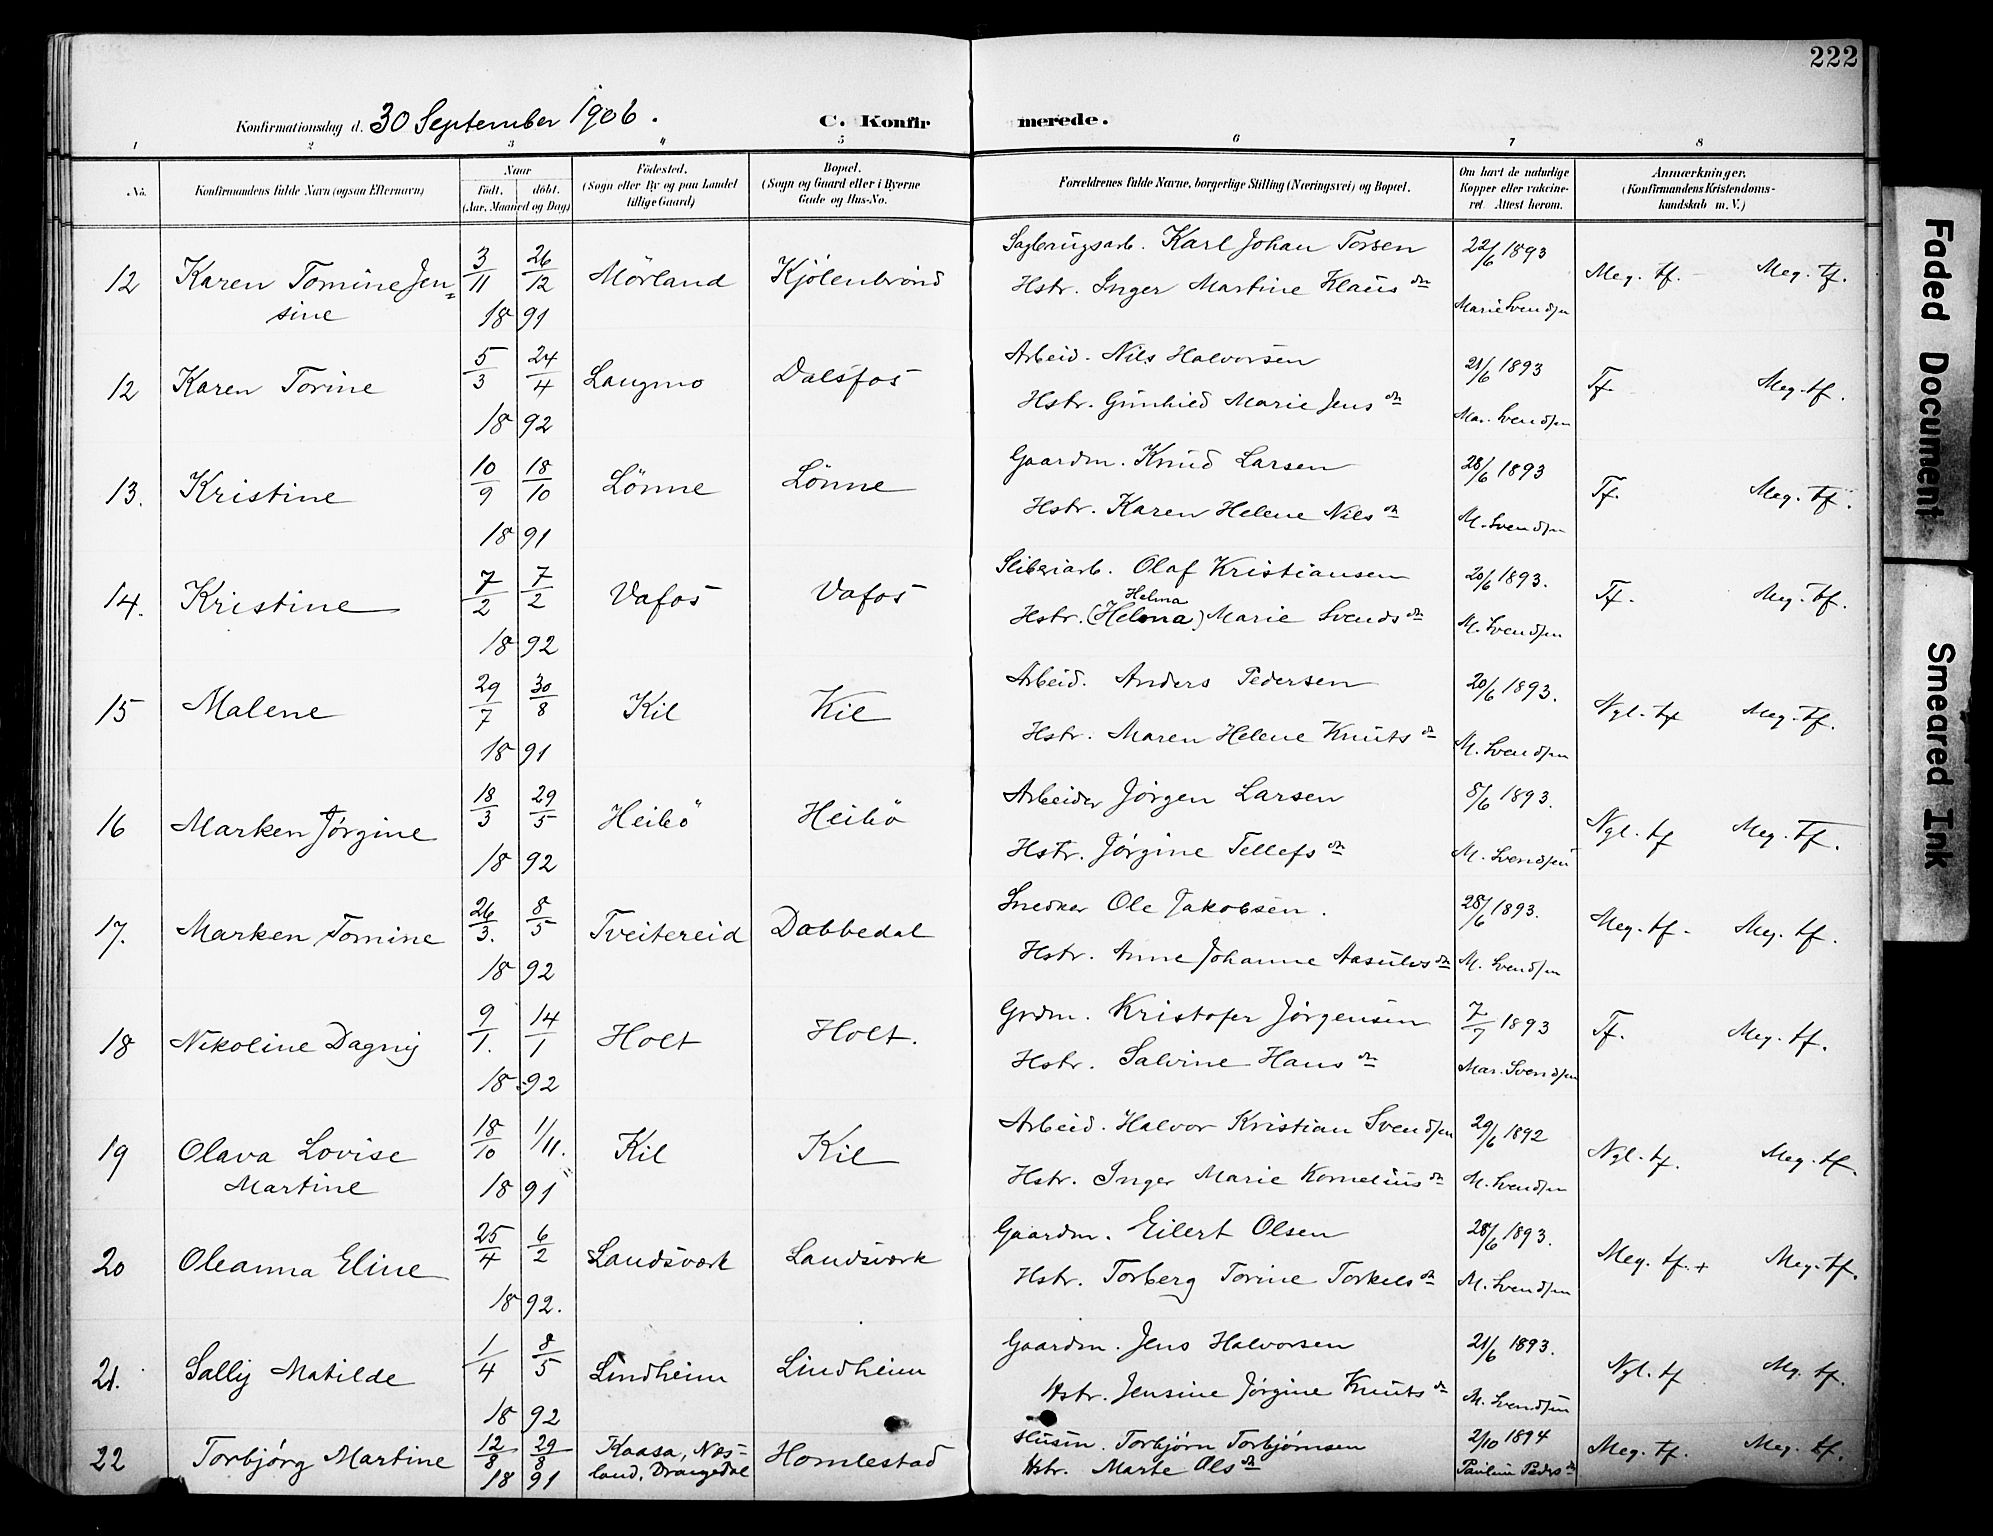 222
Konfirmationsdag d. 30 September 1906. C. Konfirmerede.
1 2 3 4 5 6 7 8
No. Konfirmandens fulde Navn (ogsaa Efternavn) Naar født. døbt. (Aar, Maaned og Dag) Födested. (Sogn eller By og paa Landet tillige Gaard) Bopæl. (Sogn og Gaard eller i Byerne Gade og Hus-No. Forældrenes fulde Navne, borgerlige Stilling (Næringsvei) og Bopæl. Om havt de naturlige Kopper eller vakcineret. Attest herom. Anmærkninger. (Konfirmandens Kristendomskundskab m. V.)
12 Karen Tomine Jen= 3/11 26/12 Mörland Kjölenbrönd Sagbrugsarb. Karl Johan Torsen 22/6 1893 Meg. tf. Meg. tf.
sine 18 91 Hstr. Inger Martine Klausdn Marie Svendsen
12 Karen Torine 5/3 24/4 Langmo Dalsfos Arbeid. Nils Halvorsen 21/6 1893 Tf Meg. tf.
18 92 Hstr. Gunhild Marie Jensdn Mar. Svendsen
13. Kristine 10/9 18/10 Lönne Lönne Gaardm. Knud Larsen 28/6 1893 Tf. Meg. tf.
18 91 Hstr. Karen Helene Nilsdn M. Svendsen
14. Kristine 7/2 7/2 Vafos Vafos Sliberiarb. Olaf Kristiansen 20/6 1893. Tf. Meg. tf.
Helma
18 92 Hstr. (Helena) Marie Svendsdn M. Svendsen
15 Malene 29/7 30/8 Kil Kil Arbeid. Anders Pedersen 20/6 1893. Ngl. tf Meg. tf.
18 91 Hstr. Maren Helene Knutsdn M. Svendsen
16 Marken Jörgine 18/3 29/5 Heibö Heibö Arbeider Jörgen Larsen 8/6 1893. Ngl. tf Meg. tf.
18 92 Hstr. Jörgine Tellefsdn M. Svendsen
17. Marken Tomine 26/3. 8/5 Tveitereid Dobbedal Snedker Ole Jakobsen. 28/6 1893. Meg. tf. Meg. tf.
18 92 Hstr. Anne Johanne Aasulvsdn M. Svendsen
18 Nikoline Dagny 9/1. 14/1 Holt Holt. Grdm. Kristofer Jörgensen 7/7 1893 Tf. Meg. tf.
18 92 Hstr. Salvine Hansdn Mar. Svendsen
19 Olava Lovise 18/10 1/11. Kil Kil Arbeid. Halvor Kristian Svendsen 29/6 1892 Ngl. tf. Meg. tf.
Martine 18 91 Hstr. Inger Marie Korneliusdn M. Svendsen
20 Oleanna Eline 25/4 6/2 Landsværk Landsværk Gaardm. Eilert Olsen 28/6 1893. Meg. tf. + Meg. tf.
18 92. Hstr. Torberg Torine Torkelsdn M. Svendsen
21. Sally Matilde 1/4 8/5 Lindheim Lindheim Gaardm. Jens Halvorsen 21/6 1893. Ngl. tf Mg. tf.
18 92 Hstr. Jensine Jörgine Knutsdn M. Svendsen
22 Torbjørg Martine 12/8 29/8 Kaasa, Næs= Homlestad Husm. Torbjörn Torbjörnsen 2/10 1894 Meg. tf. Meg. tf.
18 91 land, Drangedal Hstr. Marte Olsdn Pauline Pedersdn
Faded Document
Smeared Ink